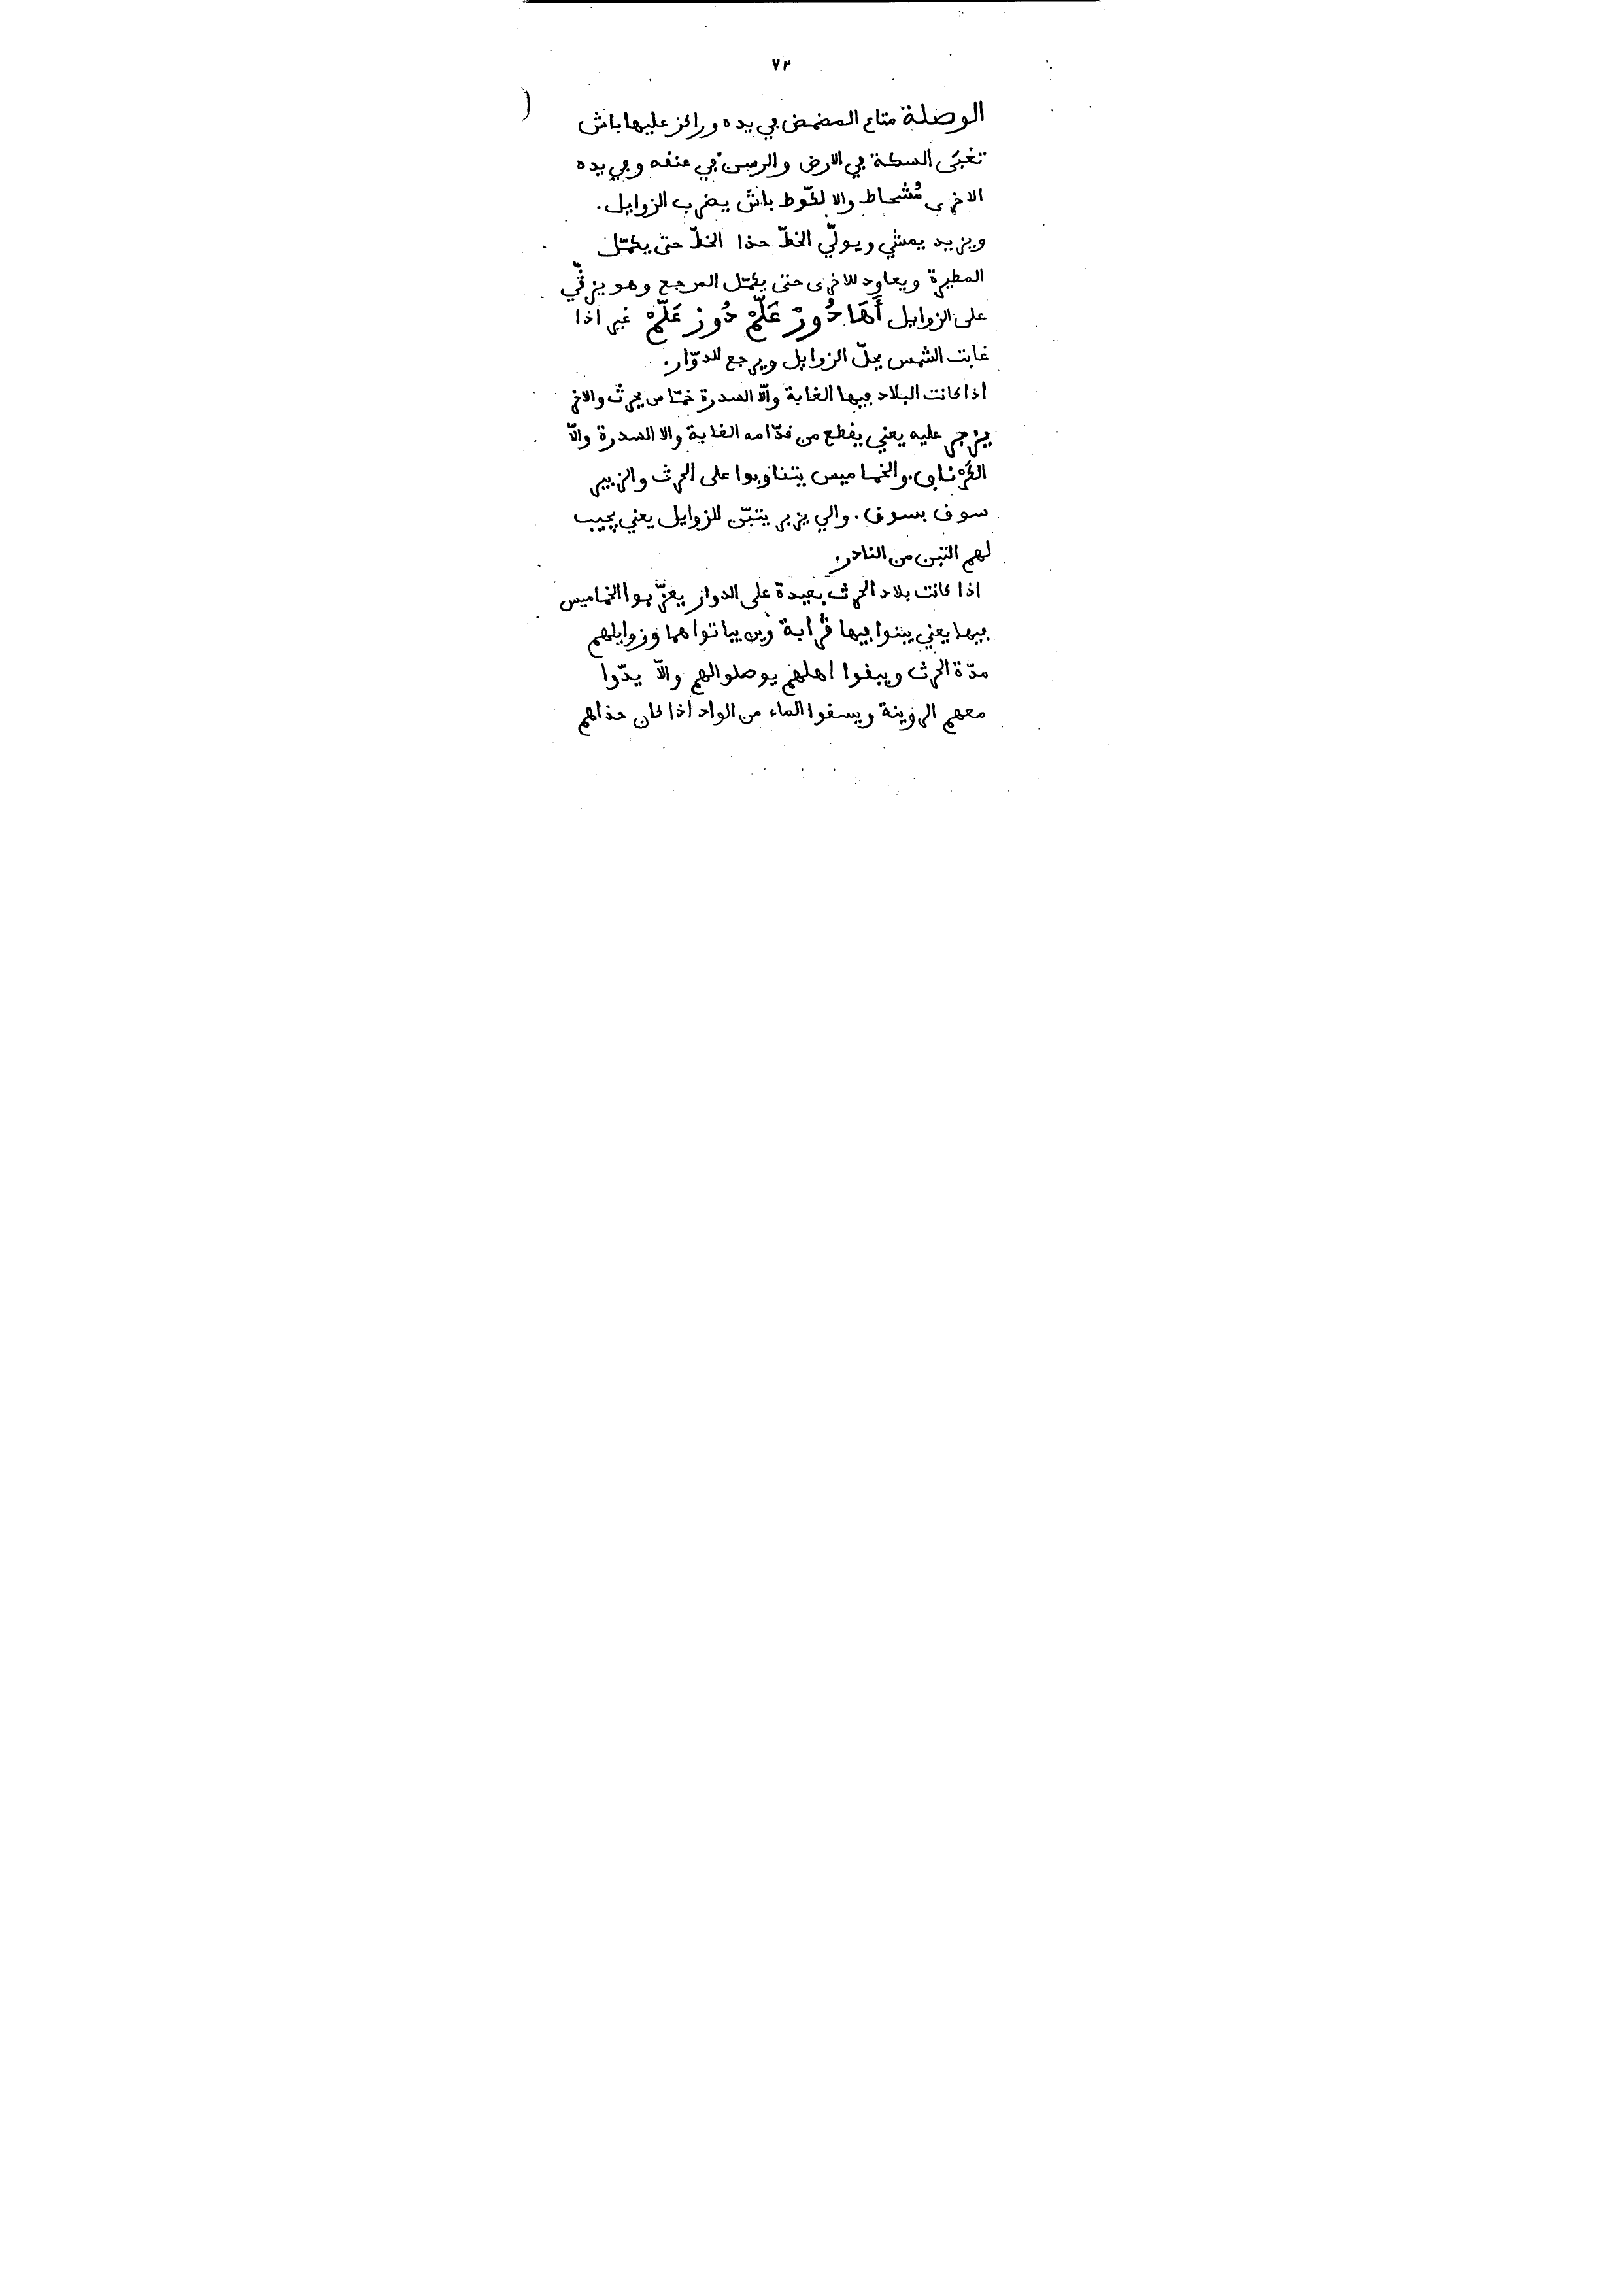 ٧٣
الوصلة متاع المضمض في يده ورائز عليها باش
تغبَى السكة في الارض والرسن في عنقه وفي يده
الاخرى مُشحاط والا لكّوط باش يضرب الزوايل.
ويزيد يمشي ويولّي الخطّ حذا الخطّ حتى يكمّل
المطيرة ويعاود للاخرى حتى يكمّل المرجع وهو يزقّي
على الزوايل أَهَا دُورْ عَلَّمْ دُورْ عَلَّمْ غير اذا
غابت الشمس يحلّ الزوايل ويرجع للدوّار.
اذا كانت البلاد فيها الغابة والّا السدرة خمّاس يحرث والاخر
يزبر عليه يعني يقطع من قدّامه الغابة والا السدرة والّا
الكرْناف. والخماميس يتناوبوا على الحرث والزبير
سوق بسوق. والي يزبر يتبّن للزوايل يعني يجيب
لهم التبن من النادر.
اذا كانت بلاد الحرث بعيدة على الدوار يعزّبوا الخماميس
فيها يعني يبنوا فيها قرابة وين يباتوا هما وزوايلهم
مدّة الحرث ويبقوا اهلهم يوصلوا لهم والّا يدّوا
معهم الروينة ويسقوا الماء من الواد اذا كان حذاهم